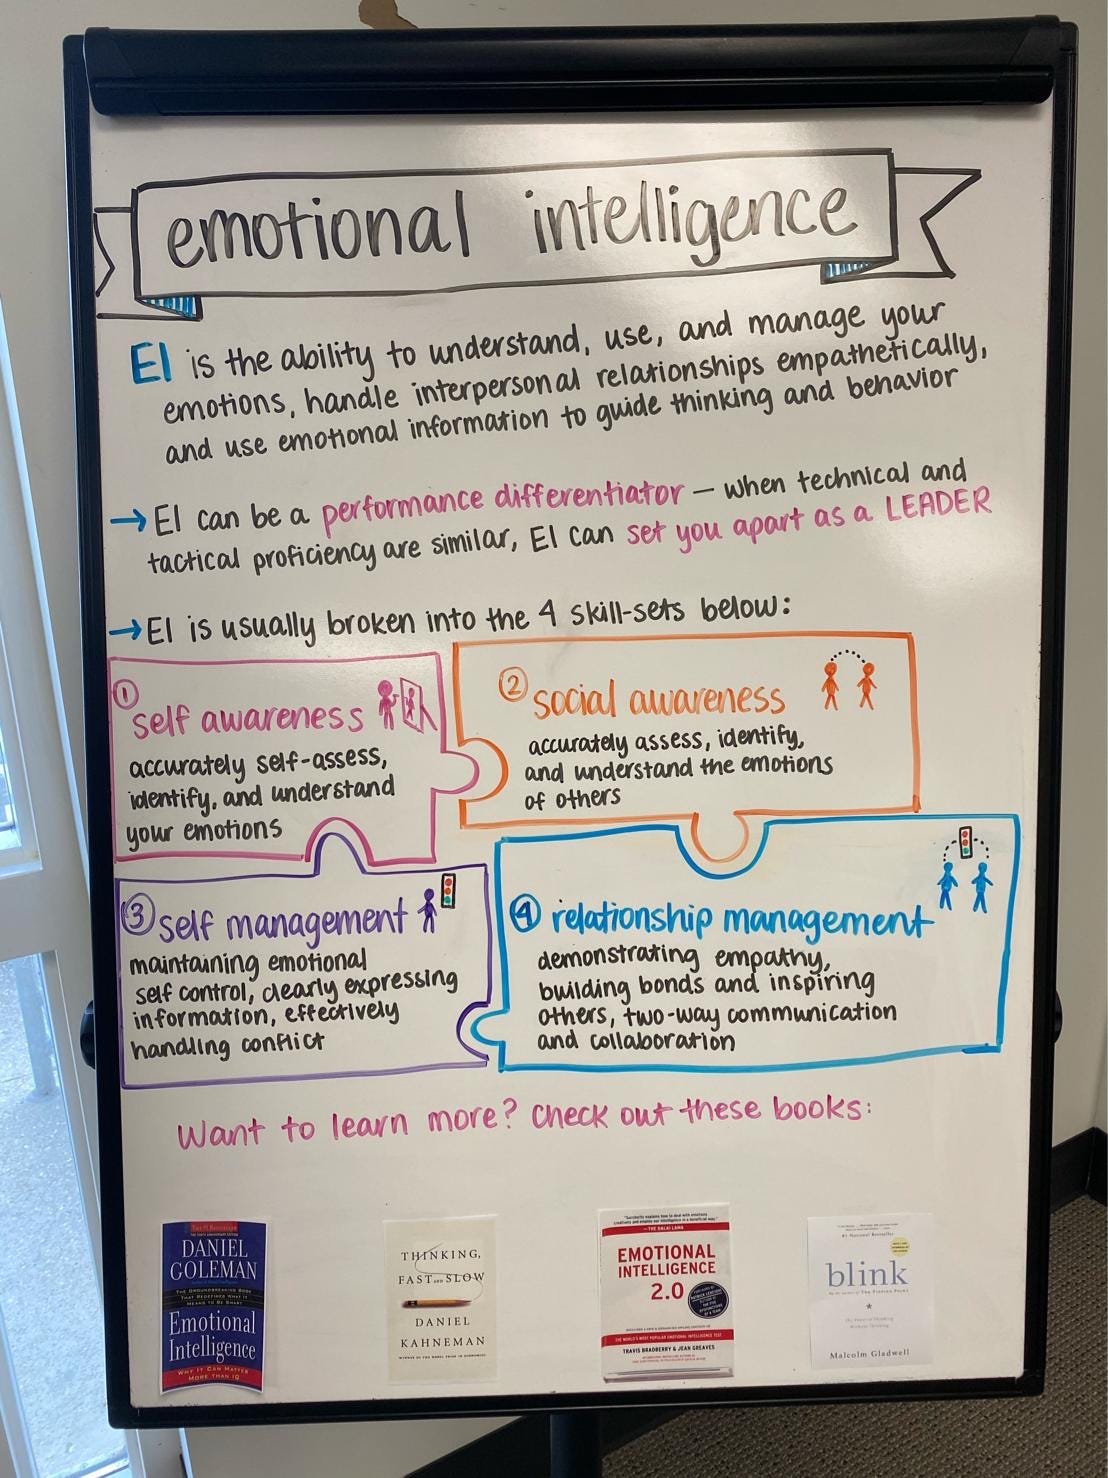 emotional intelligence
EI is the ability to understand, use, and manage your
emotions, handle interpersonal relationships empathetically,
and use emotional information to guide thinking and behavior
→ EI can be a performance differentiator — when technical and
tactical proficiency are similar, EI can set you apart as a LEADER
→ EI is usually broken into the 4 skill-sets below:
① self awareness
accurately self-assess,
identify, and understand
your emotions
② social awareness
accurately assess, identify,
and understand the emotions
of others
③ self management
maintaining emotional
self control, clearly expressing
information, effectively
handling conflict
④ relationship management
demonstrating empathy,
building bonds and inspiring
others, two-way communication
and collaboration
Want to learn more? Check out these books:
DANIEL
GOLEMAN
THE GROUNDBREAKING BOOK
THAT REDEFINES WHAT IT
MEANS TO BE SMART
Emotional
Intelligence
WHY IT CAN MATTER
MORE THAN IQ
THINKING,
FAST AND SLOW
DANIEL
KAHNEMAN
WINNER OF THE NOBEL PRIZE IN ECONOMICS
— THE DALAI LAMA
EMOTIONAL
INTELLIGENCE
2.0
THE WORLD'S MOST POPULAR EMOTIONAL INTELLIGENCE TEST
TRAVIS BRADBERRY & JEAN GREAVES
#1 National Bestseller
blink
The Power of Thinking
Without Thinking
Malcolm Gladwell